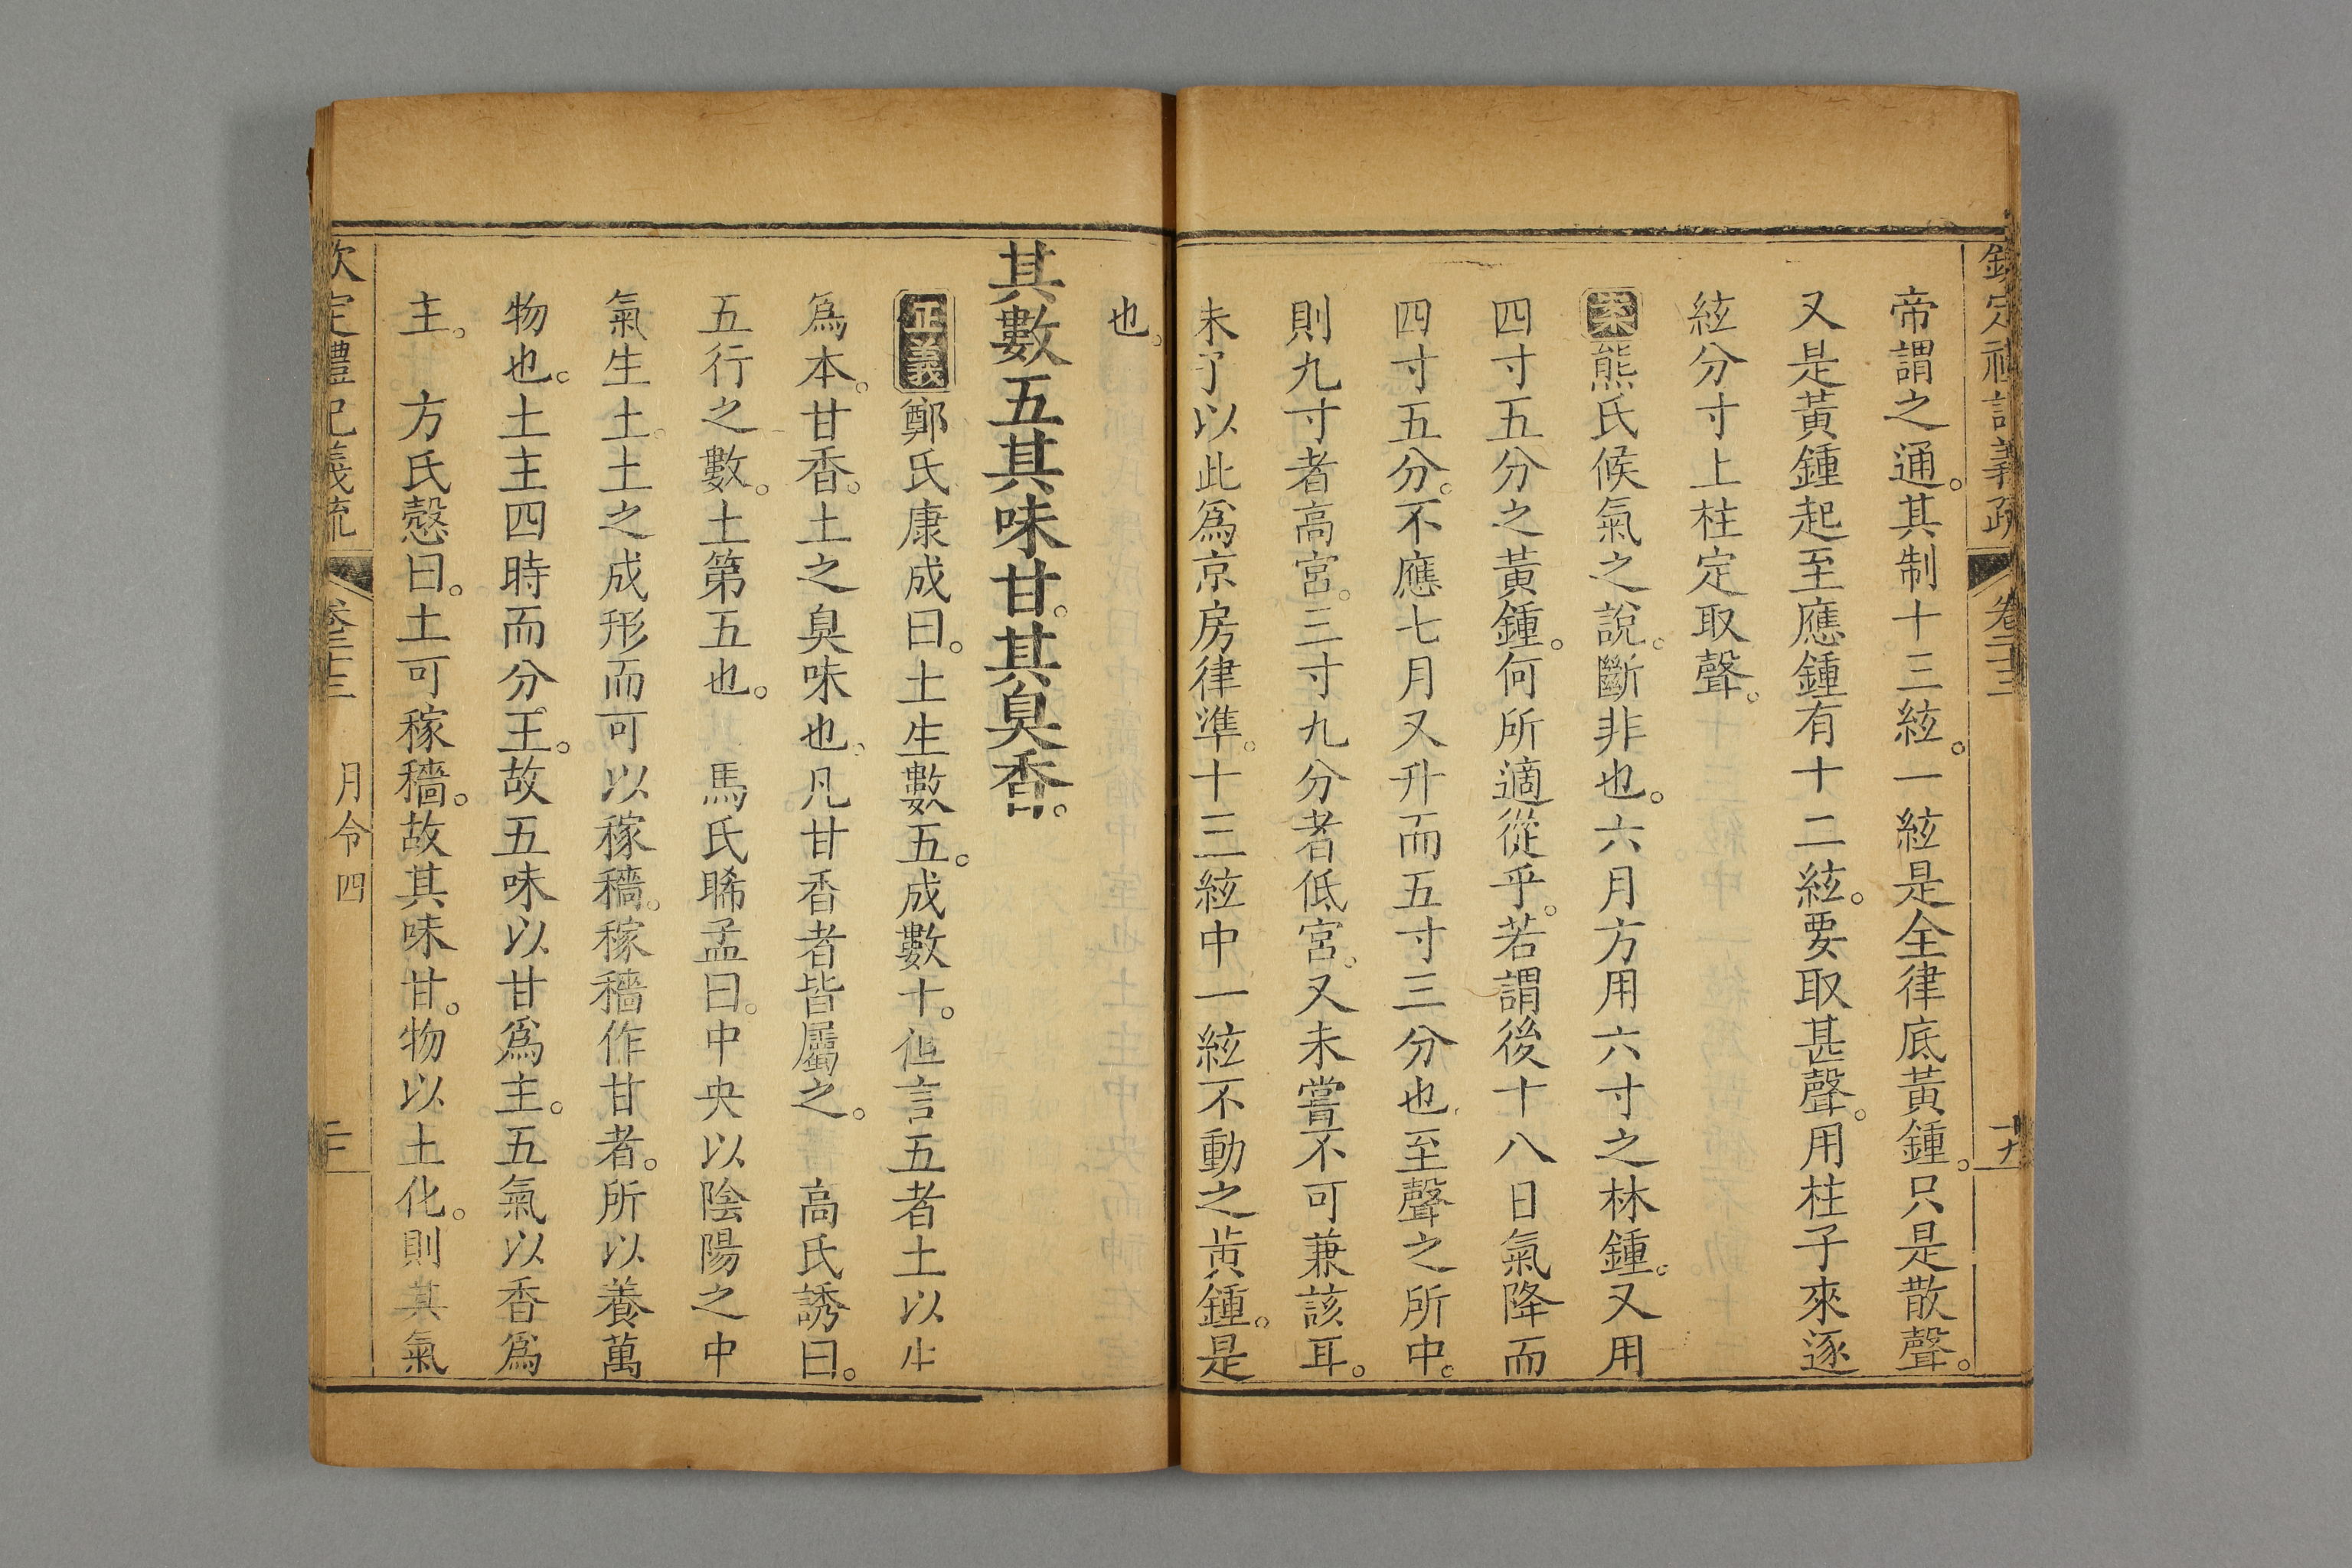 欽定禮記義疏 卷二十三 十九
帝謂之通。其制十三絃。一絃是全律底黃鍾。只是散聲。
又是黃鍾起至應鍾有十二絃。要取甚聲。用柱子來逐
絃分寸上柱定取聲。
案熊氏候氣之說。斷非也。六月方用六寸之林鍾。又用
四寸五分之黃鍾。何所適從乎。若謂後十八日氣降而
四寸五分。不應七月又升而五寸三分也。至聲之所中。
則九寸者高宮。三寸九分者低宮。又未嘗不可兼該耳。
未了以此爲京房律準。十三絃中一絃不動之黃鍾。是
也。
其數五其味甘。其臭香。
正義鄭氏康成曰。土生數五。成數十。但言五者土以生
爲本。甘香。土之臭味也。凡甘香者皆屬之。 高氏誘曰。
五行之數。土第五也。 馬氏睎孟曰。中央以陰陽之中
氣生土。土之成形而可以稼穡。稼穡作甘者。所以養萬
物也。土主四時而分王。故五味以甘爲主。五氣以香爲
主。 方氏慤曰。土可稼穡。故其味甘。物以土化。則其氣
欽定禮記義疏 卷二十三 月令四 二十